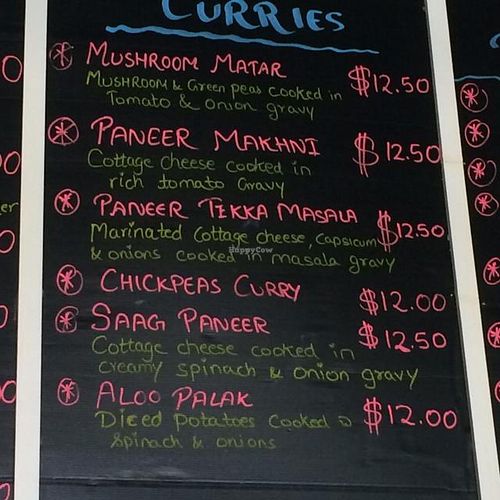 CURRIES
MUSHROOM MATAR $12.50
MUSHROOM & Green peas cooked in
Tomato & onion gravy
PANEER MAKHNI $12.50
Cottage cheese cooked in
rich tomato Gravy
PANEER TIKKA MASALA $12.50
Marinated Cottage cheese, capsicum
& onions cooked in masala gravy
HappyCow
CHICKPEAS CURRY $12.00
SAAG PANEER $12.50
Cottage cheese cooked in
creamy spinach & onion gravy
ALOO PALAK $12.00
Diced Potatoes Cooked
spinach & onions